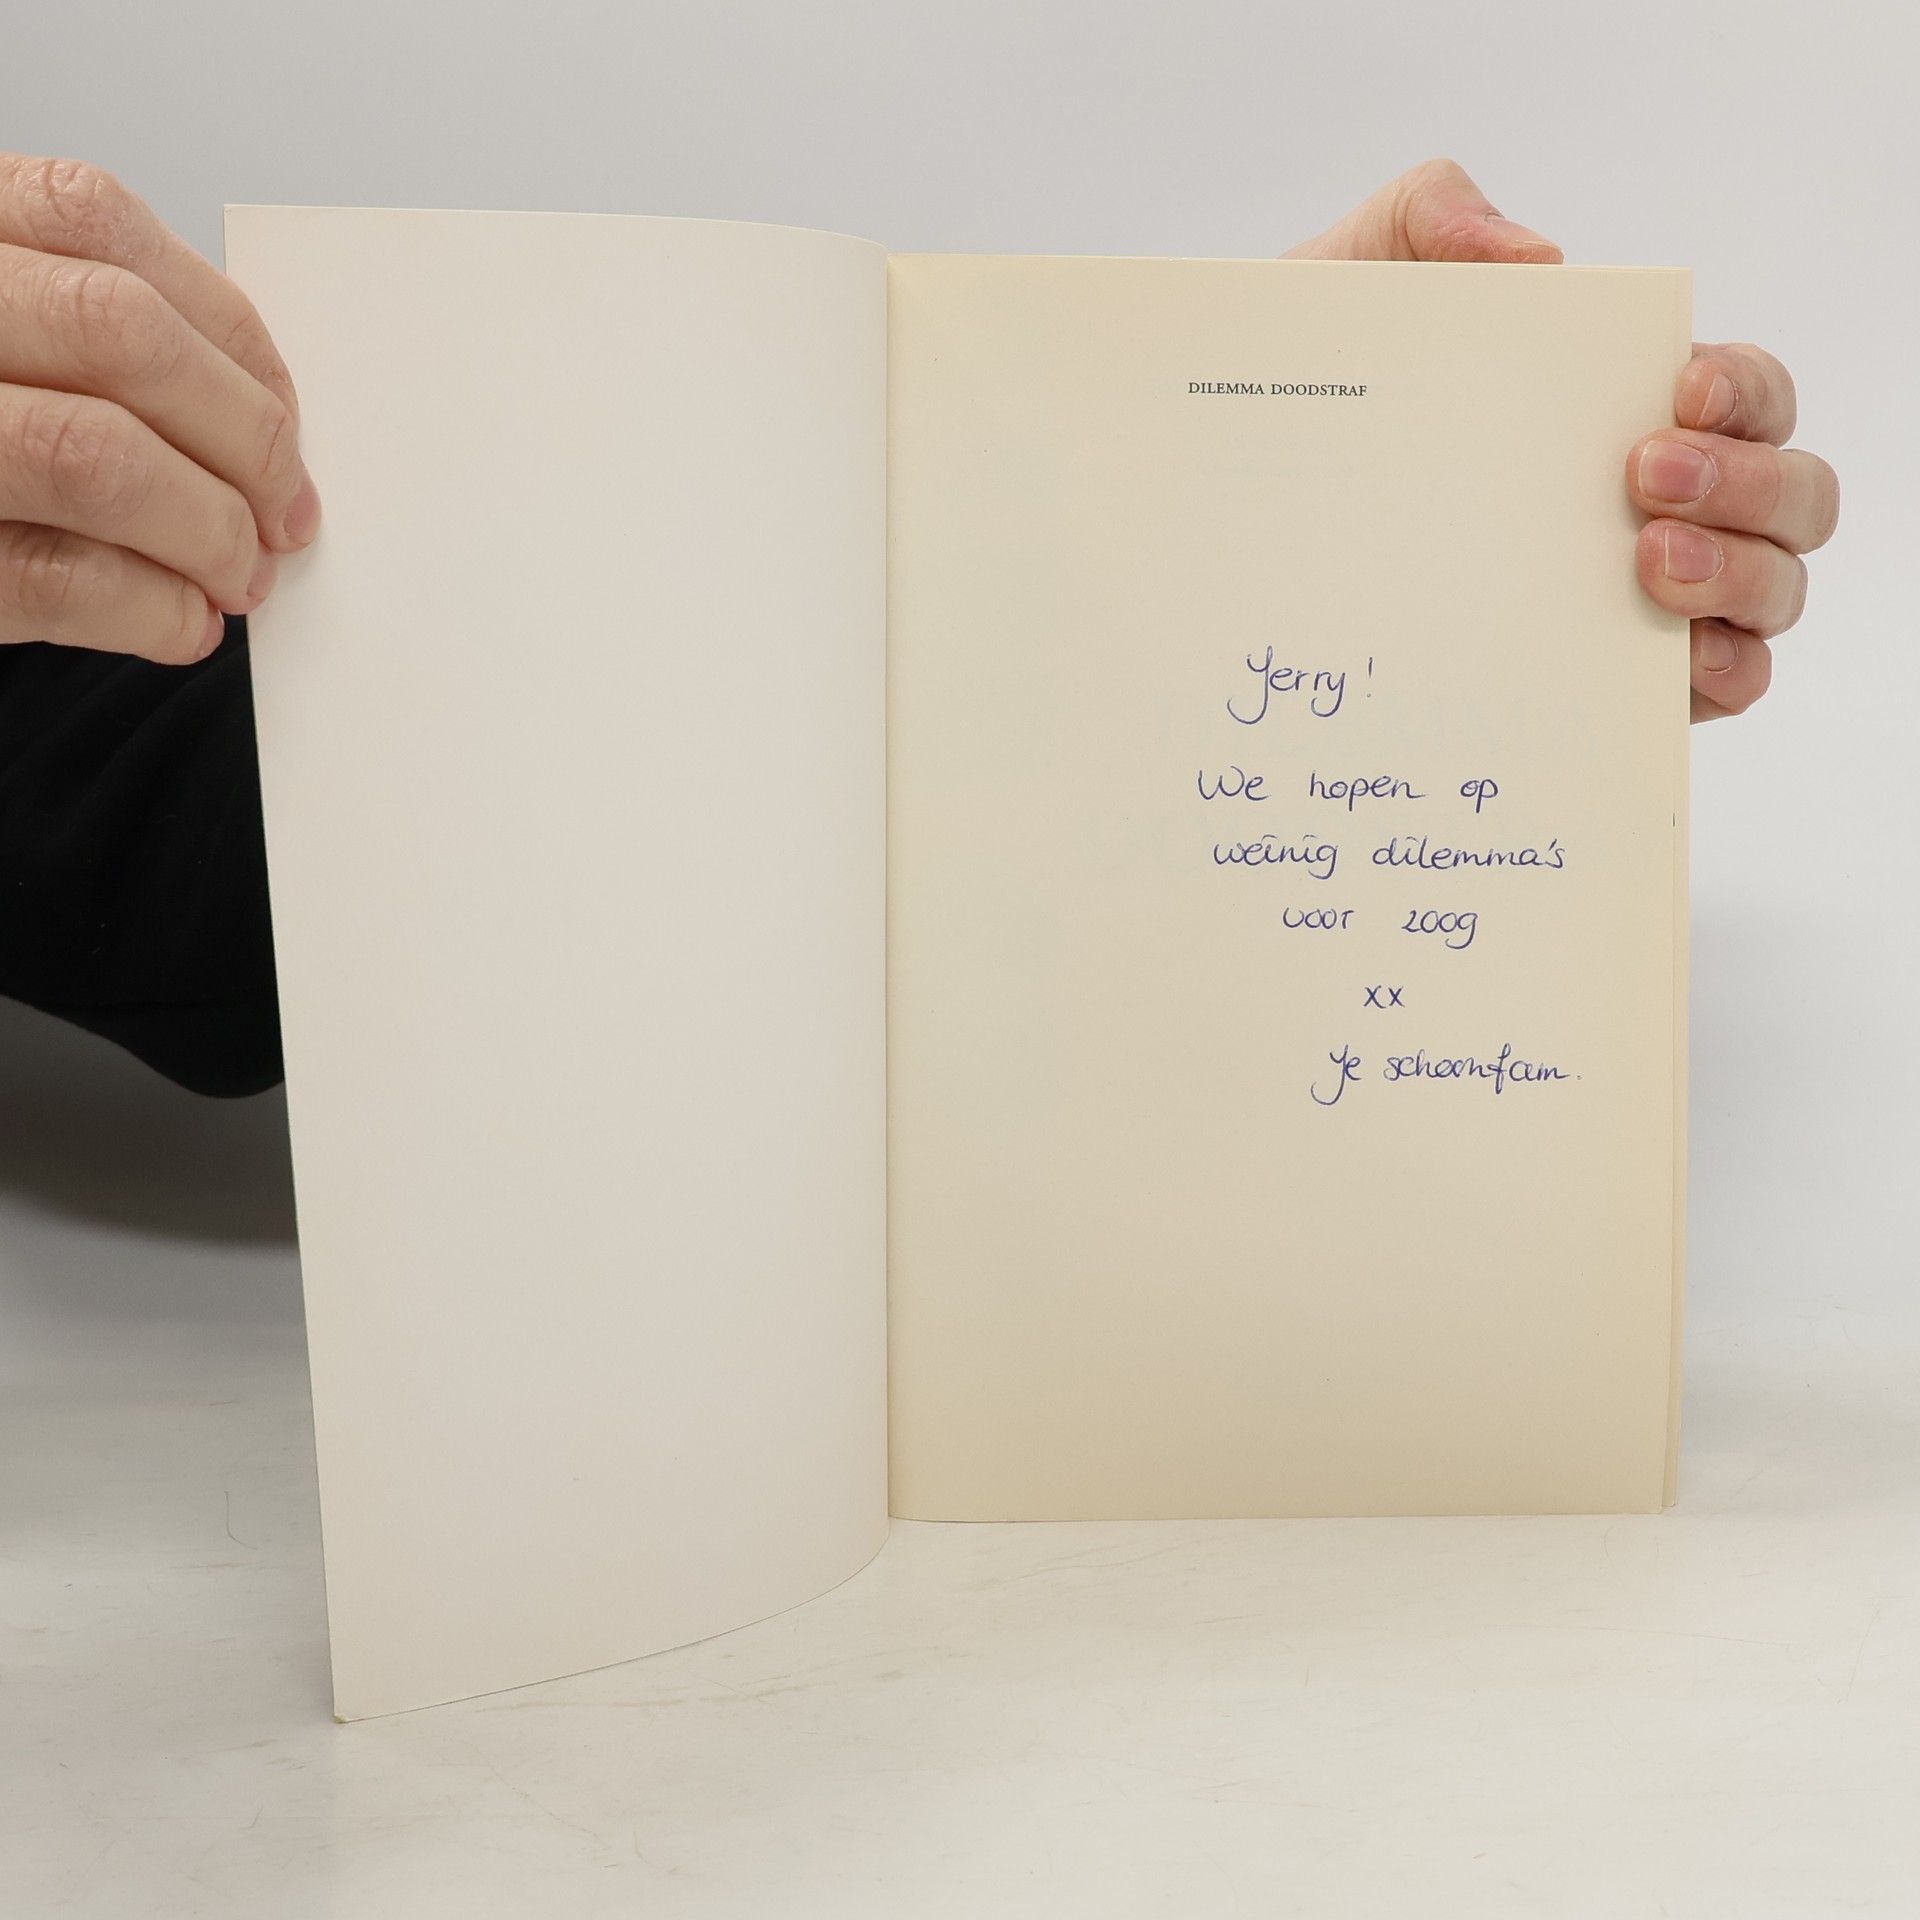 DILEMMA DOODSTRAF
Jerry!
We hopen op
weinig dilemma's
voor 2009
xx
Je schoonfam.